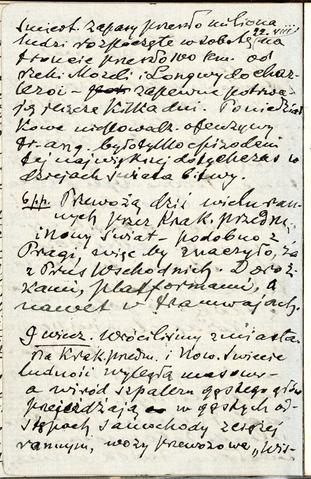 śmiert. zapasy przeszło miliona
ludzi rozpoczęte w sobotę 22.VIII na
froncie przeszło 100 km. od
rzeki Mozeli i Longwy do Char-
leroi - zapewne potrwa-
ją jeszcze kilka dni. Poniedział-
kowe niepowodz. ofenzywy
fr. ang. było tylko epizodem
tej największej dotychczas w
dziejach świata bitwy.
6 p.p. Przewożą dziś wielu ran-
nych przez Krak. przedm.
i Nowy Świat - podobno z
Pragi, więc by znaczyło, że
z Prus Wschodnich. Doroż-
kami, platformami, a
nawet w tramwajach.
9 wiecz. Wróciliśmy z miasta.
Na Krak. przedm. i Now. Świecie
ludność wyległa masowo -
a wśród szpaleru gęstego głów
przejeżdżają w gęstych od-
stępach samochody z ciężej
rannym, wozy przewozowe, "Wis-